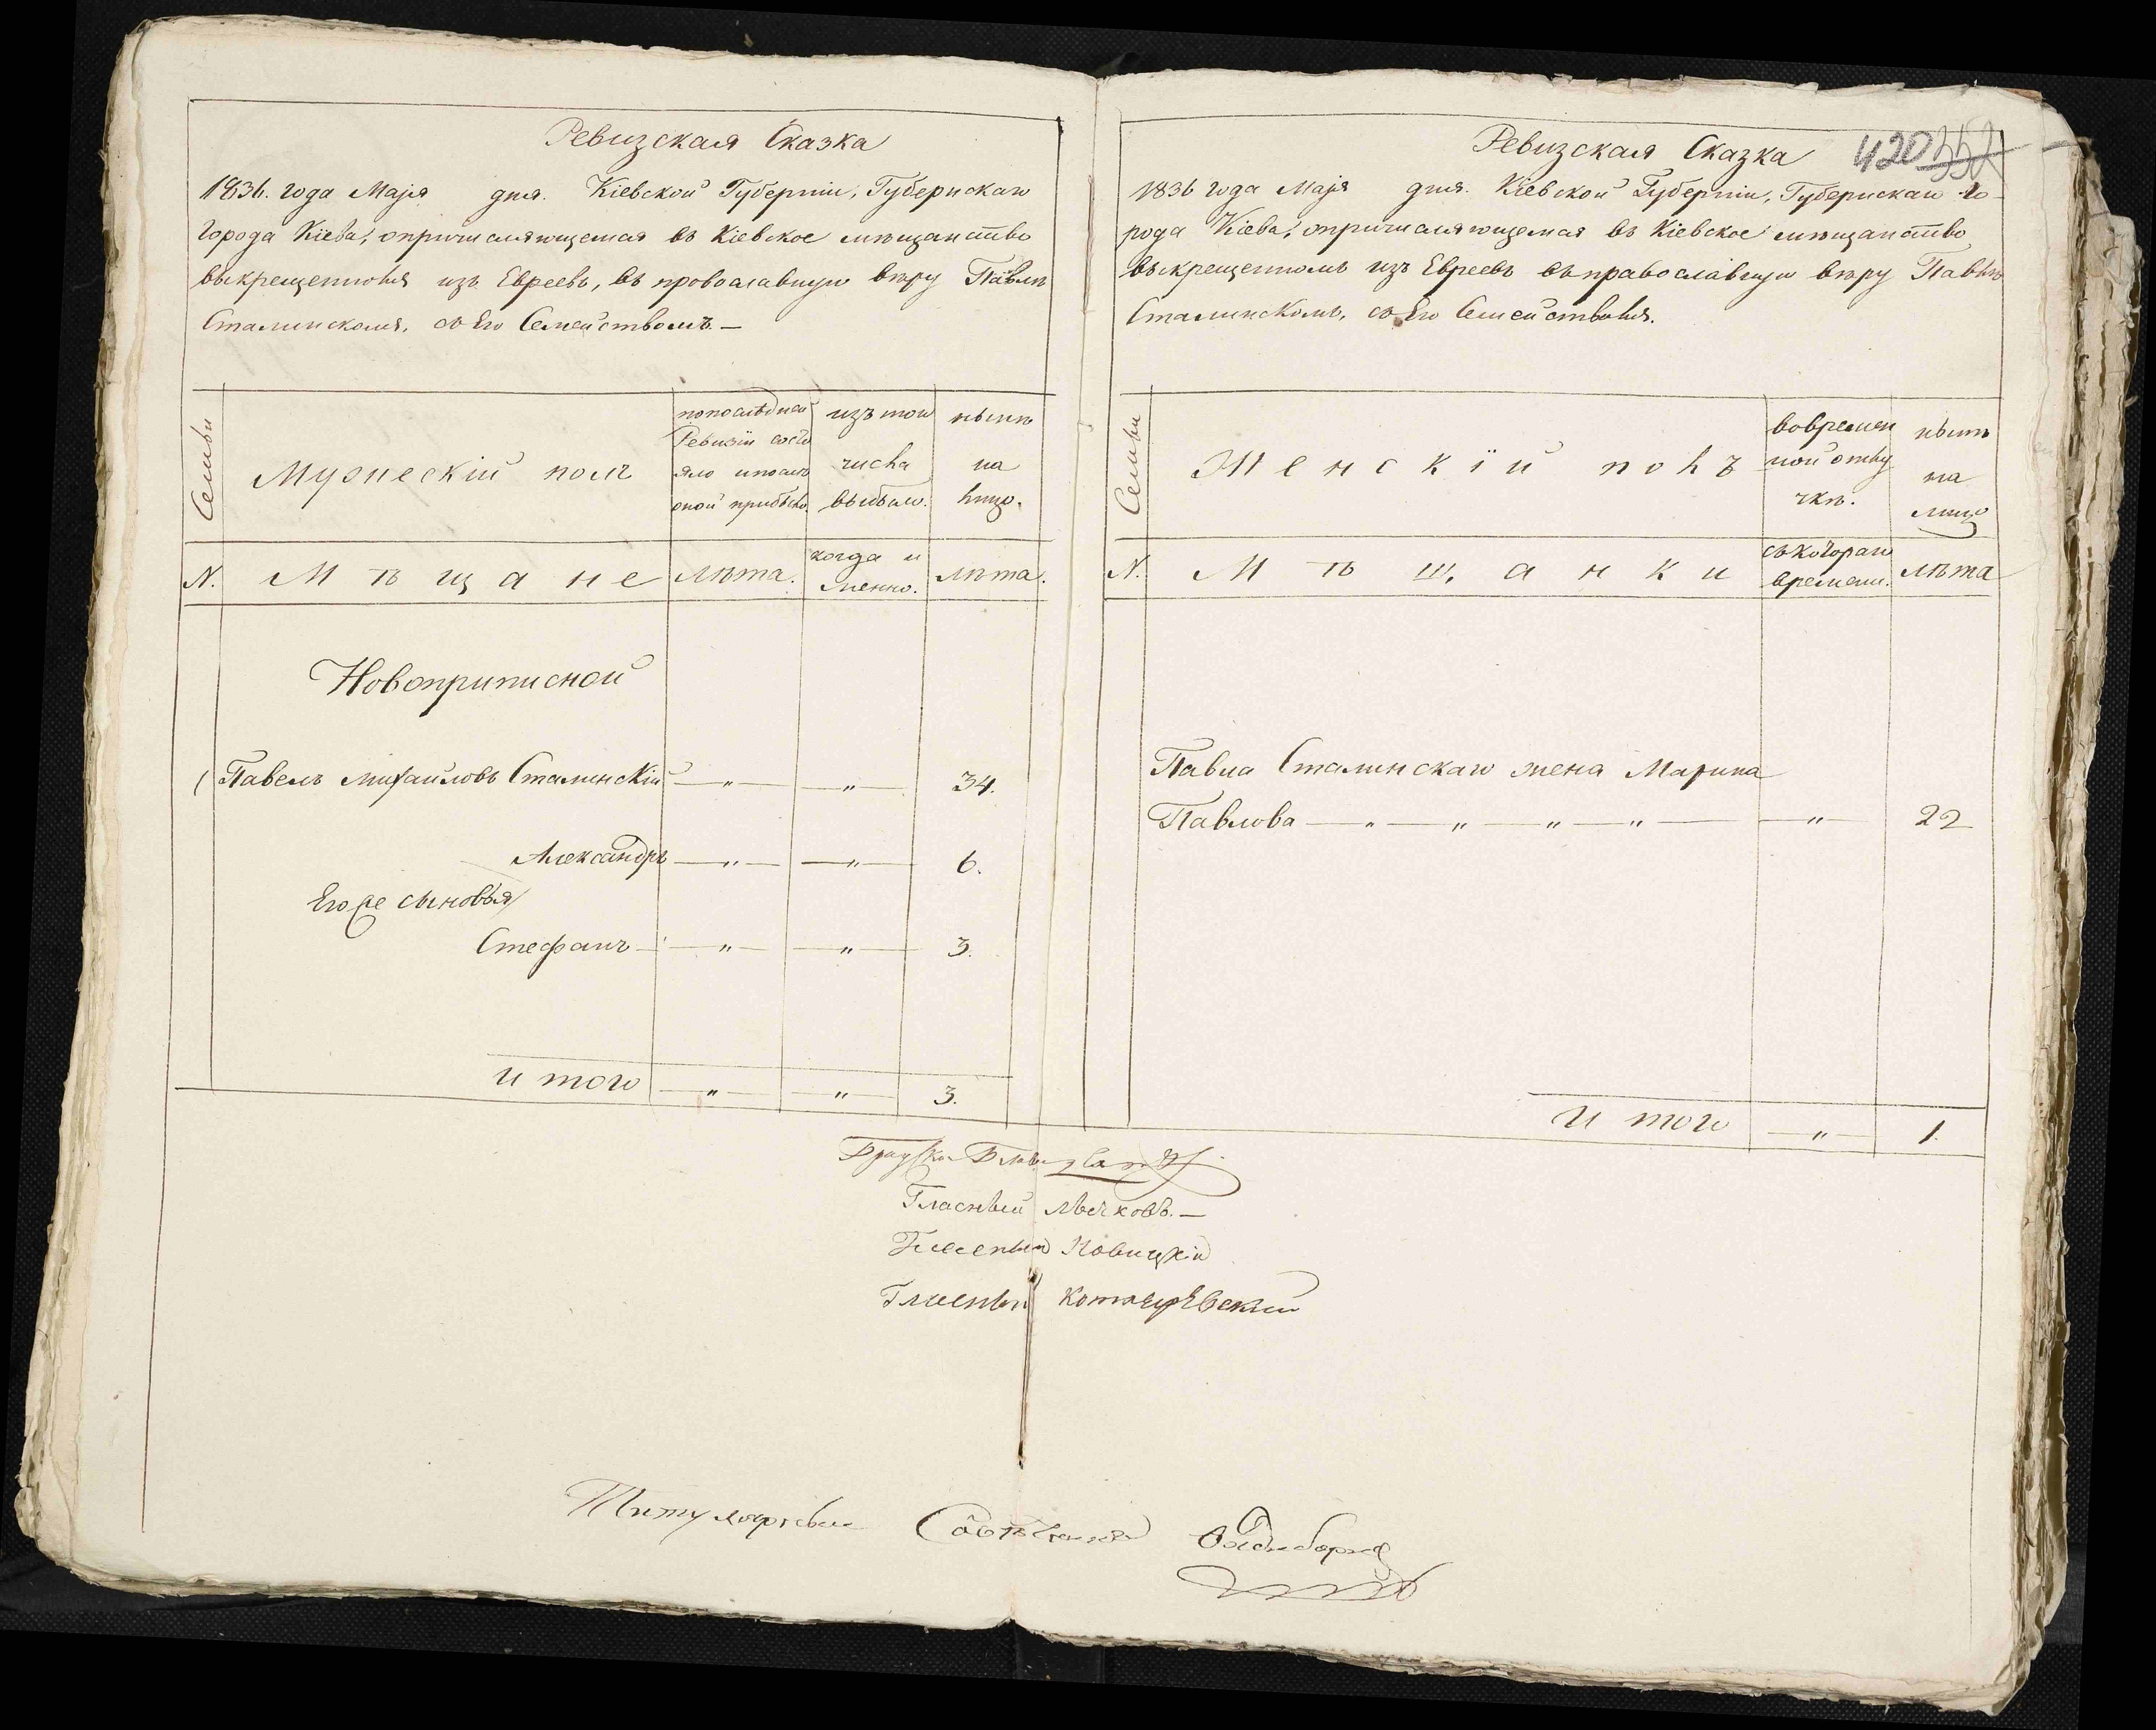 Ревизская Сказка
1836. года Маія дня. Кіевской Губерніи, Губернскаго
города Кіева, опричисляющемся въ Кіевское мѣщанство
выкрещенномъ изъ Евреевъ, въ провославную вѣру Павлѣ
Сталинскомъ, съ Его Семействомъ.—
Семьи
Мужескій полъ
попослѣдней
Ревизіи состо
яло и послѣ
оной прибыло.
изъ того
числа
выбыло.
нынѣ
на
лицо.
N.
Мѣщане
Лѣта.
когда и
менно.
лѣта.
Новоприписной
1 Павелъ Михайловъ Сталинскій — " — — " — 34.
Александръ — " — — " — 6.
Его же сыновья
Стефанъ — " — — " — 3.
Итого — " — — " — 3.
Ревизская Сказка
420 352
1836 года Маія дня. Кіевской Губерніи, Губернскаго го-
рода Кіева, опричисляющемся въ Кіевское мѣщанство
выкрещенномъ изъ Евреевъ въ православную вѣру Павлѣ
Сталинскомъ, съ Его Семействомъ.
Семьи
Женскій полъ
вовремен
ной отлу
чкѣ.
нынѣ
на
лицо
N.
Мѣщанки
съ котораго
времени.
лѣта
Павла Сталинскаго жена Марина
Павлова — " — " — " — " — — " — 22
Итого — " — 1.
Гласный Лычковъ.—
Гласный Новицкій
Гласный
Титулярный Совѣтникъ